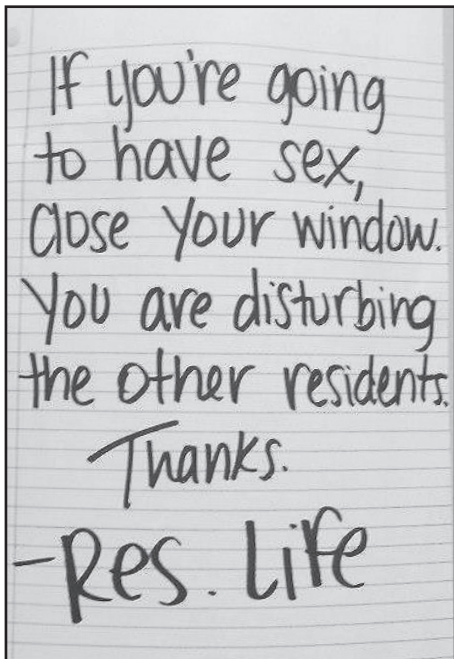 If you're going
to have sex,
close your window.
You are disturbing
the other residents.
Thanks.
-Res. Life